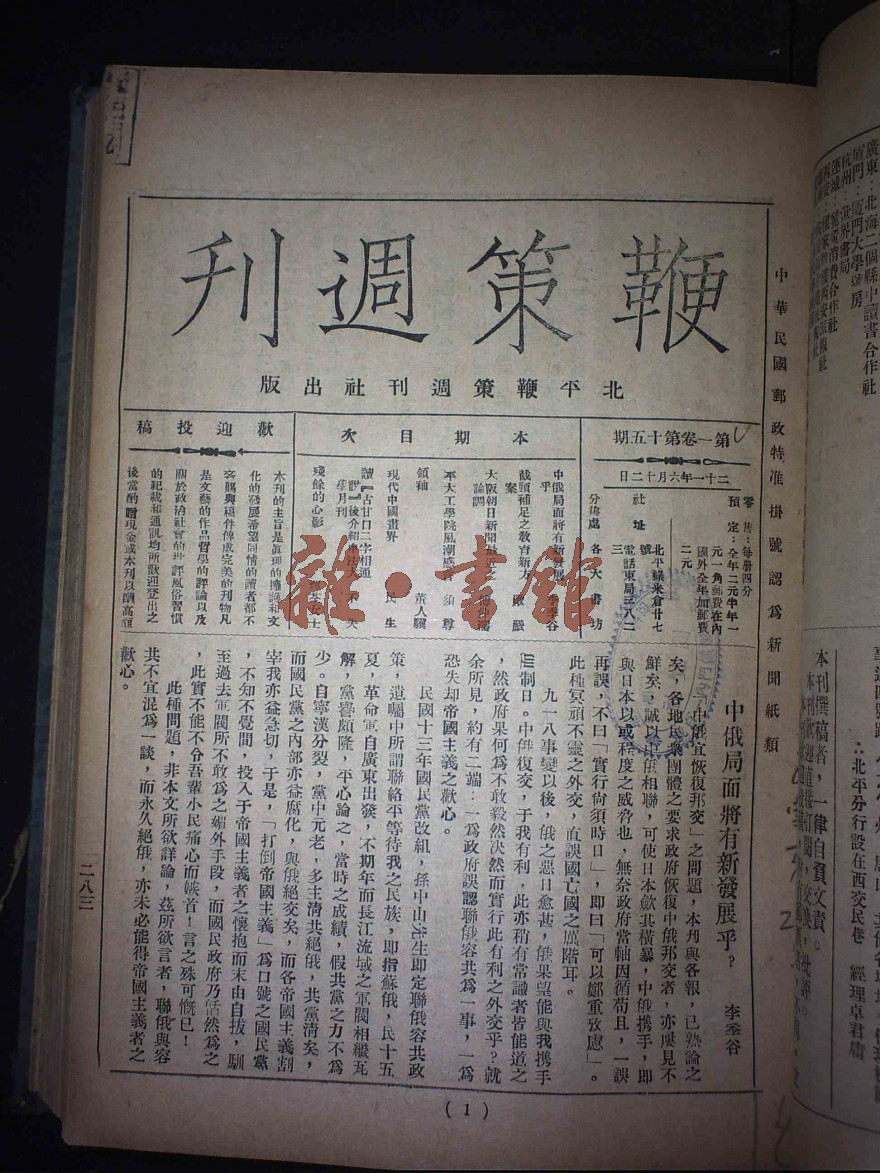 中華民國郵政特准掛號認爲新聞紙類
鞭策週刊
北平鞭策週刊社出版
第一卷第十五期
二十一年六月十二日
零售：每册四分
預定：全年二元半年一
元一角郵費在內
國外全年加郵費
二元
社址
北平祿米倉廿七
號
電話東局三八二
三
分售處 各大書坊
本期目次
中俄局面將有新發展
乎
截頭補足之敎育新方
案 嚴嚴
大阪朝日新聞最近之
論調
平大工學院風潮感 須尊
領袖 董人驥
現代中國畫界 民生
讀『古廿口二字相通
說』後介紹
學月刋
殘餘的心影 女士
歡迎投稿
本刋的主旨是眞理的擁護和文
化的發展希望同情的讀者都不
客賜與稿件俾成完美的刋物凡
是文藝的作品哲學的評論以及
關於政治社會的批評風俗習慣
的紀載和通訊均所歡迎登出之
後當酌贈現金或本刋以酬高誼
中俄局面將有新發展乎？ 李季谷
「中俄宜恢復邦交」之問題，本刋與各報，已熟論之
矣，各地民衆團體之要求政府恢復中俄邦交者，亦屢見不
鮮矣，誠以中俄相聯，可使日本歛其橫暴，中俄携手，即
與日本以或程度之威脅也，無奈政府當軸因循苟且，一誤
再誤，不曰「實行尙須時日」，即曰「可以鄭重攷慮」。
此種冥頑不靈之外交，直誤國亡國之厲階耳。
九一八事變以後，俄之惡日愈甚，俄果望能與我携手
以制日。中俄復交，于我有利，此亦稍有常識者皆能道之
，然政府果何爲不敢毅然決然而實行此有利之外交乎？就
余所見，約有二端：一爲政府誤認聯俄容共爲一事，一爲
恐失却帝國主義之歡心。
民國十三年國民黨改組，孫中山先生即定聯俄容共政
策，遺囑中所謂聯絡平等待我之民族，即指蘇俄，民十五
夏，革命軍自廣東出發，不期年而長江流域之軍閥相繼瓦
解，黨譽頗隆，平心論之，當時之成績，假共黨之力不爲
少。自寧漢分裂，黨中元老，多主淸共絕俄，共黨淸矣，
而國民黨之內部亦益腐化，與俄絕交矣，而各帝國主義割
宰我亦益急切，于是，「打倒帝國主義」爲口號之國民黨
，不知不覺間，投入于帝國主義者之懷抱而末由自拔，馴
至過去軍閥所不敢爲之媚外手段，而國民政府乃恬然爲之
，此實不能不令吾輩小民痛心而嫉首！言之殊可慨已！
此種問題，非本文所欲詳論，茲所欲言者，聯俄與容
共不宜混爲一談，而永久絕俄，亦未必能得帝國主義者之
歡心。
二八三
( 1 )
雜·書館
本刋撰稿者，一律自負文責。
本刋歡迎直接訂閱，交換，批評。
∴北平分行設在西交民巷 經理卓君庸